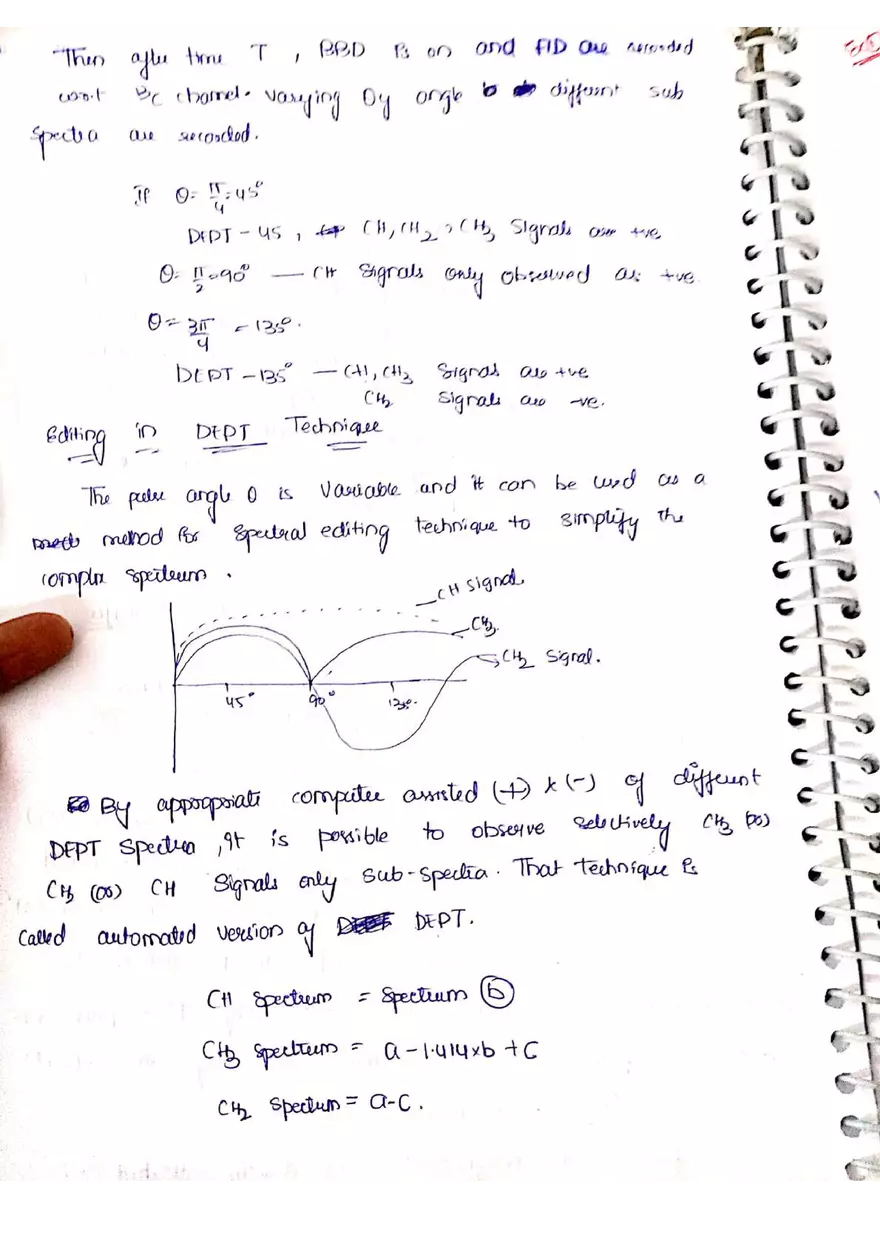 Then after time T, BBD is on and FID are recorded
w.r.t 13C channel. Varying θy angle different sub
spectra are recorded.
If θ = π/4 = 45°
DEPT - 45, CH, CH2, CH3 Signals are +ve
θ = π/2 = 90° — CH Signals only observed as +ve
θ = 3π/4 = 135°.
DEPT - 135° — CH, CH3 Signals are +ve
CH2 Signals are -ve.
Editing in DEPT Technique
The pulse angle θ is variable and it can be used as a
method for spectral editing technique to simplify the
complex spectrum.
CH signal
CH3.
CH2 signal.
45° 90° 135°.
By appropriate computer assisted (+) & (-) of different
DEPT spectra, it is possible to observe selectively CH3 (or)
CH3 (or) CH signals only sub-spectra. That technique is
called automated version of DEPT.
CH spectrum = Spectrum (b)
CH3 spectrum = a - 1.414xb + C
CH2 spectum = a-C.